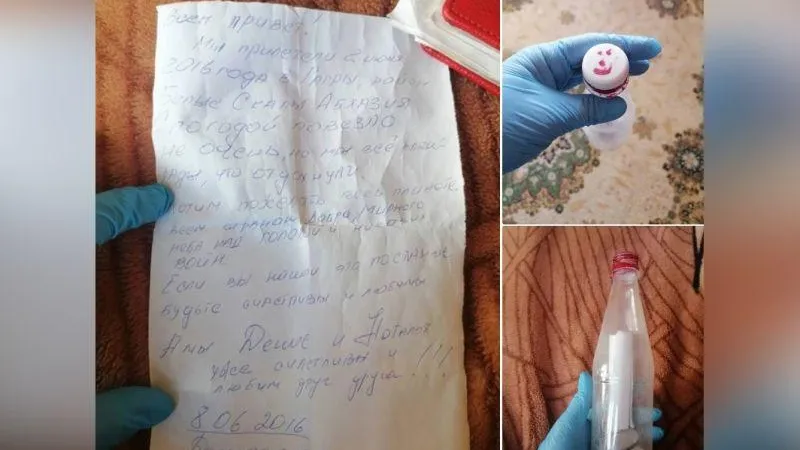 Всем привет!
Мы прилетели 2 июня
2016 года в Гагры, район
Белые Скалы Абхазия
Погодой повезло
не очень, но мы всё равно
рады, что отдохнули.
Хотим пожелать всем
всем странам добра, мирного
неба над головой и никаких
войн.
Если вы нашли это послание
будьте счастливы и любимы
А мы Денис и Наталья
уже счастливы и
любим друг друга!!!
8.06.2016